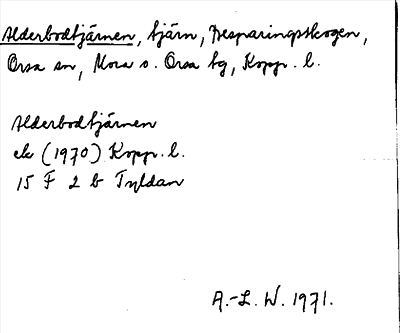 Alderbodtjärnen, tjärn, Besparingsskogen,
Orsa sn, Mora o. Orsa tg, Kopp. l.
Alderbodtjärnen
ek (1970) Kopp. l.
15 F 2 b Tyldan
A.-L. W. 1971.